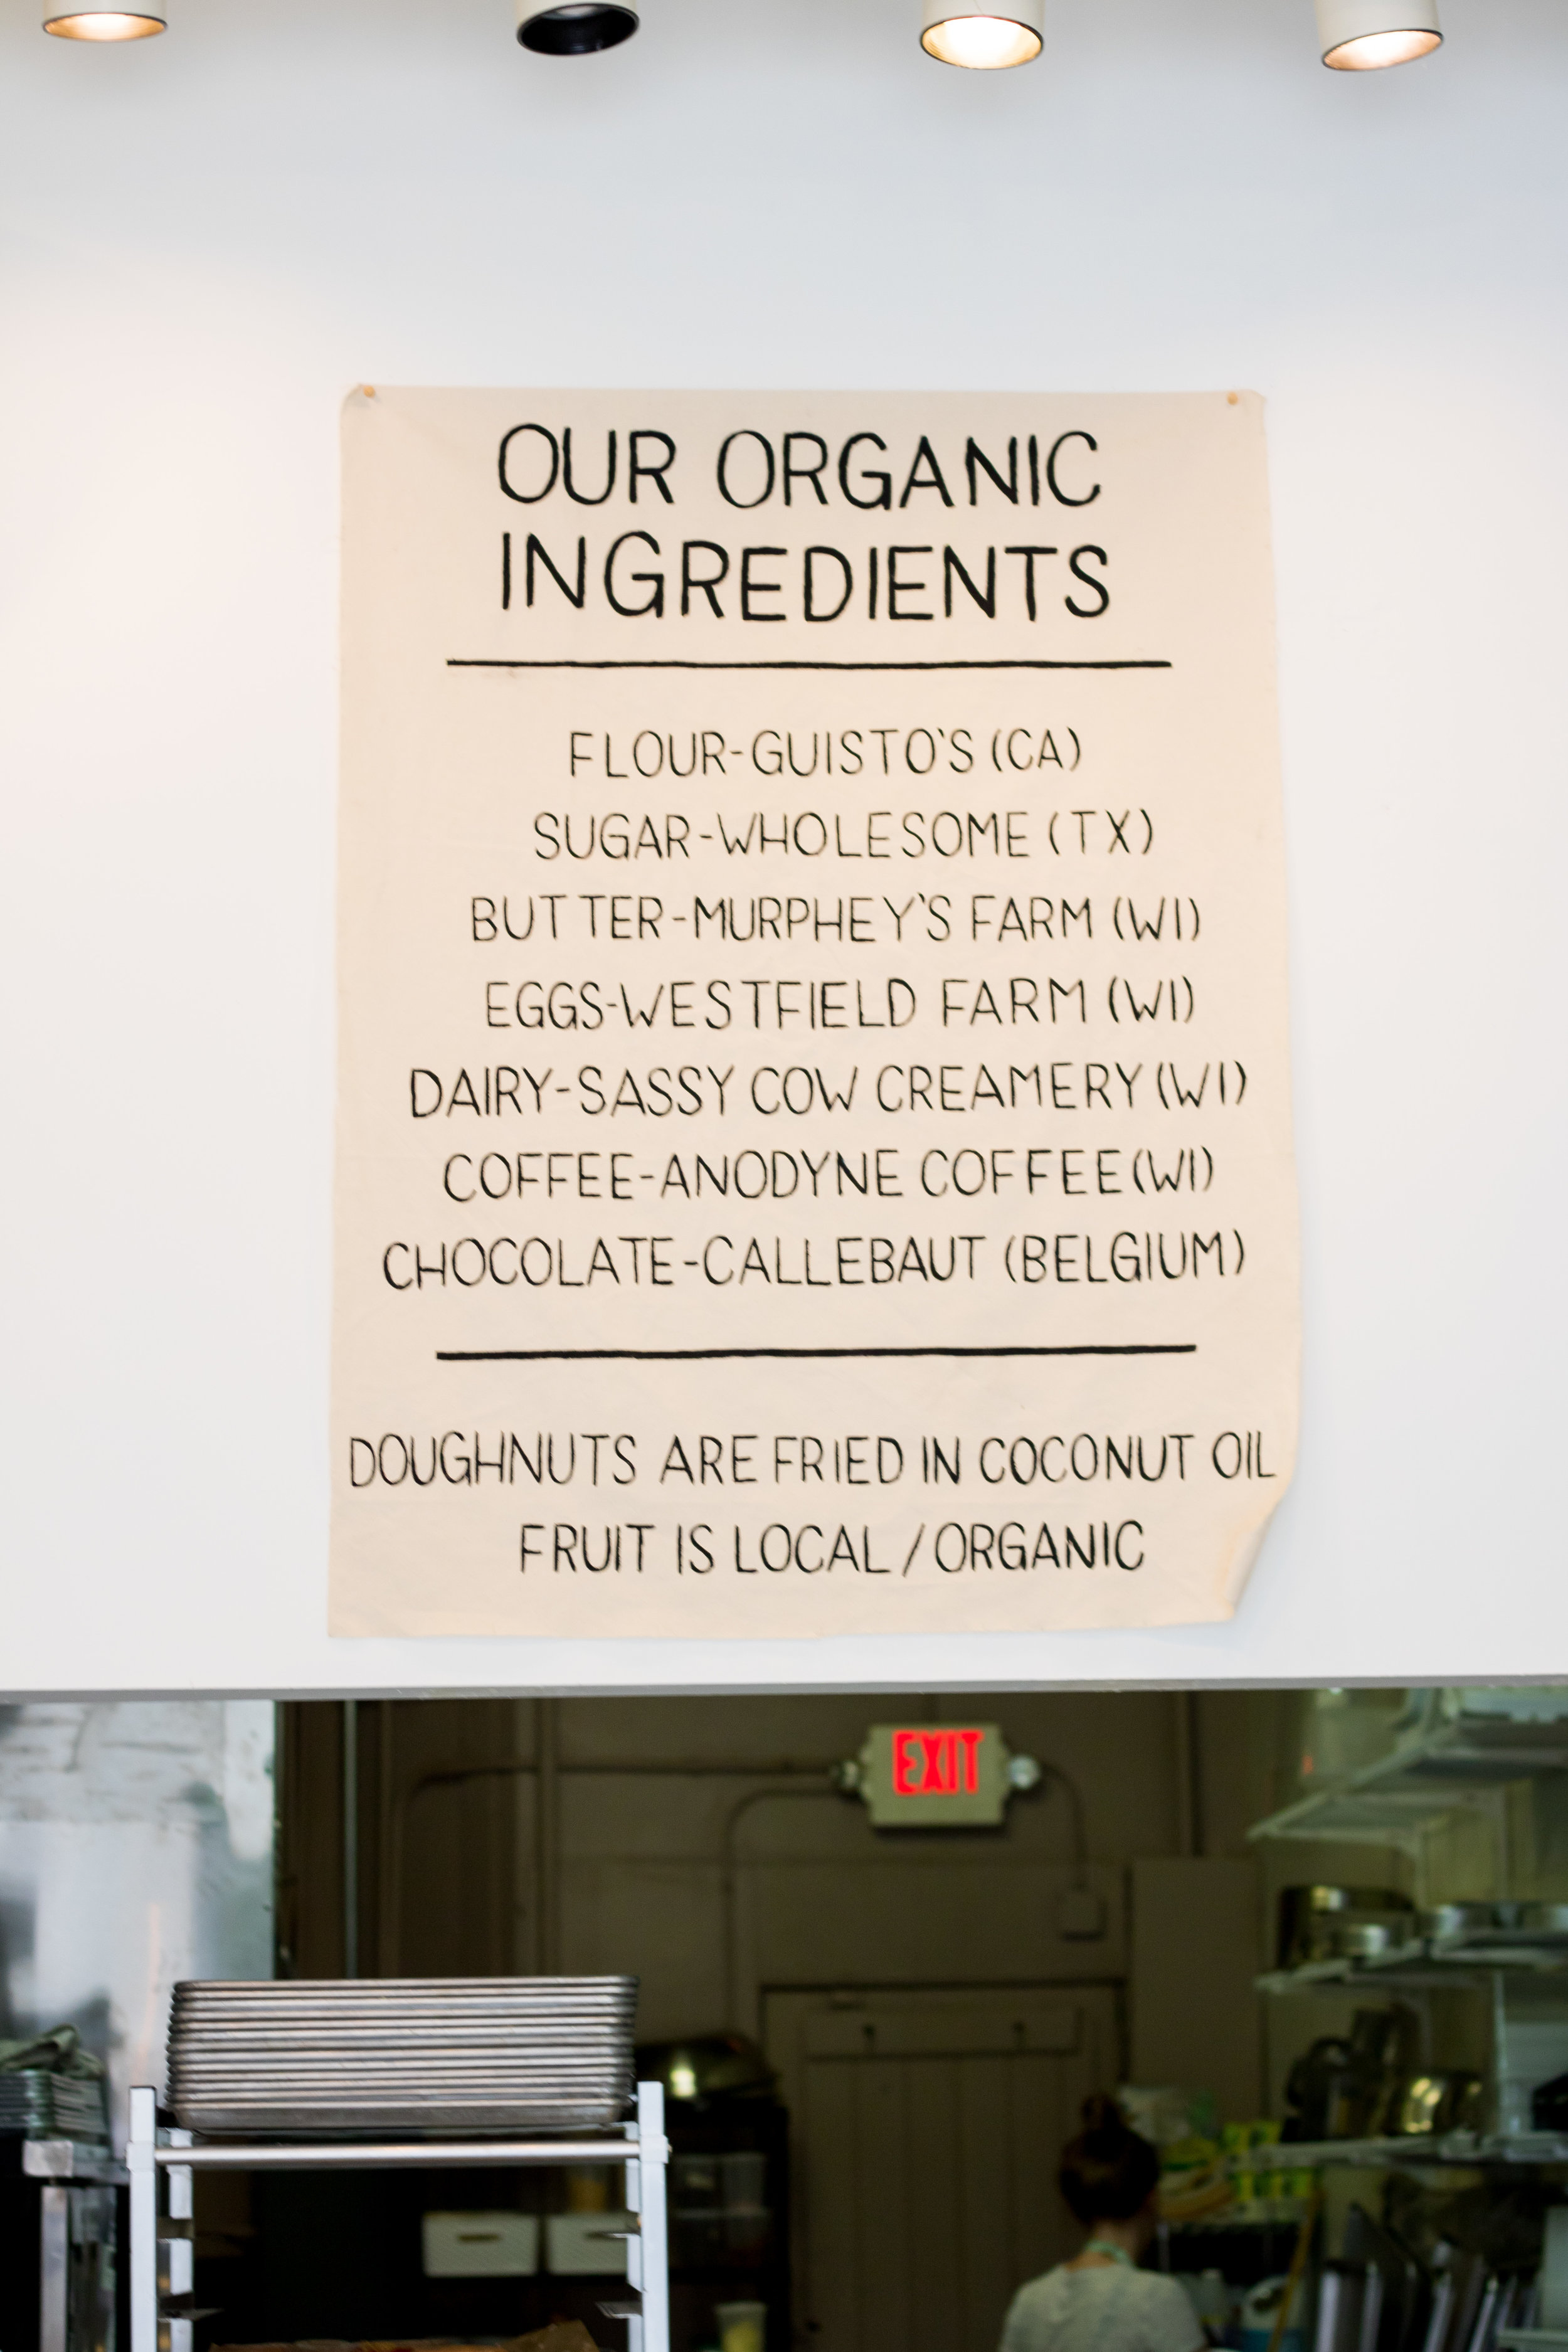 OUR ORGANIC
INGREDIENTS
FLOUR-GUISTO'S (CA)
SUGAR-WHOLESOME (TX)
BUTTER-MURPHEY'S FARM (WI)
EGGS-WESTFIELD FARM (WI)
DAIRY-SASSY COW CREAMERY (WI)
COFFEE-ANODYNE COFFEE (WI)
CHOCOLATE-CALLEBAUT (BELGIUM)
DOUGHNUTS ARE FRIED IN COCONUT OIL
FRUIT IS LOCAL / ORGANIC
EXIT